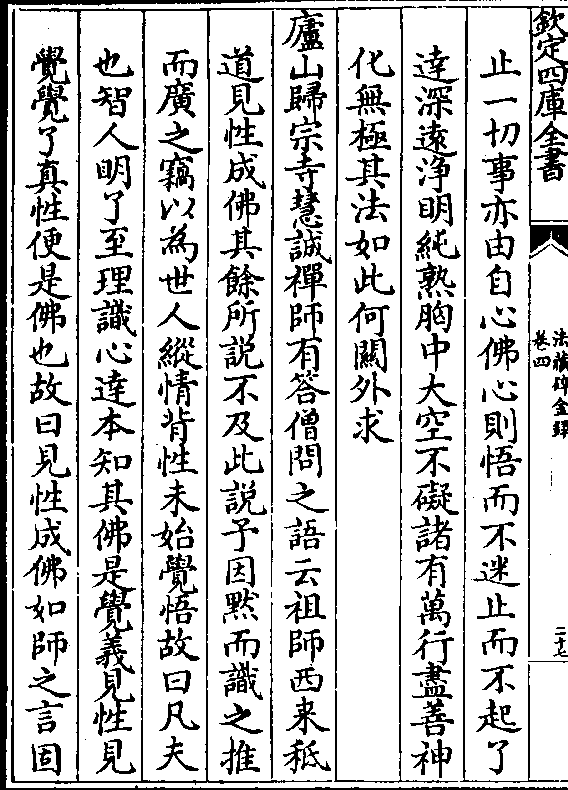 欽定四庫全書
法藏碎金錄
卷四
止一切事亦由自心佛心則悟而不迷止而不起了
達深遠浄明純熟胸中大空不礙諸有萬行盡善神
化無極其法如此何關外求
廬山歸宗寺慧誠禪師有答僧問之語云祖師西来秪
道見性成佛其餘所說不及此說予因黙而識之推
而廣之竊以為世人縱情背性未始覺悟故曰凡夫
也智人明了至理識心達本知其佛是覺義見性見
覺覺了真性便是佛也故曰見性成佛如師之言固